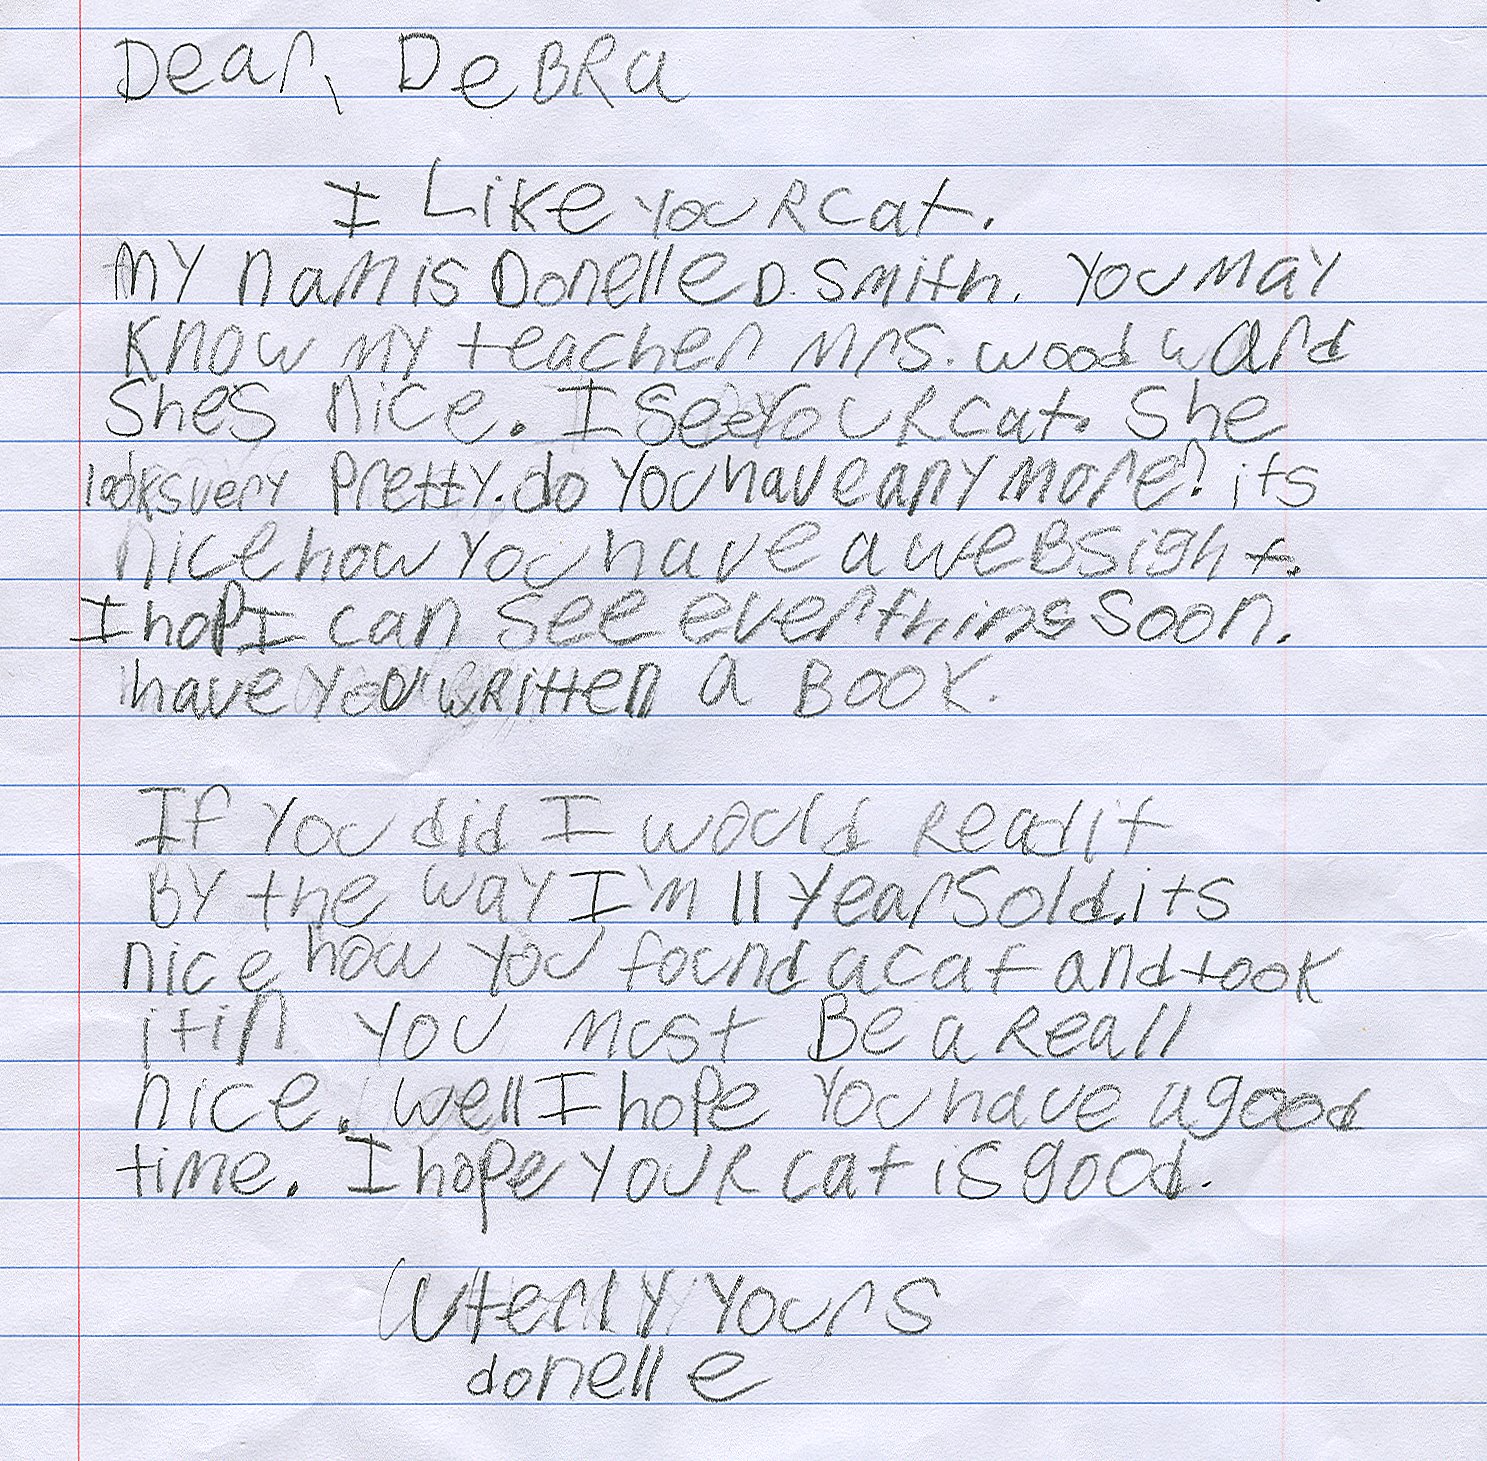 Dear, DeBRa
I Like YouR cat.
my nam is Donelle D. Smith. You may
know my teacher mrs. woodward
Shes nice. I see YouR cat. She
looks very Pretty. do You have any more? its
nice how You have a weBsight.
I hop I can see everthing Soon.
have You wRitten a Book.
If You did I would Read it
BY the way I'm 11 Years old. its
nice how You found a cat and took
it in You must Be a Reall
nice. well I hope You have a good
time. I hope YouR cat is good.
Uterly Yours
donelle